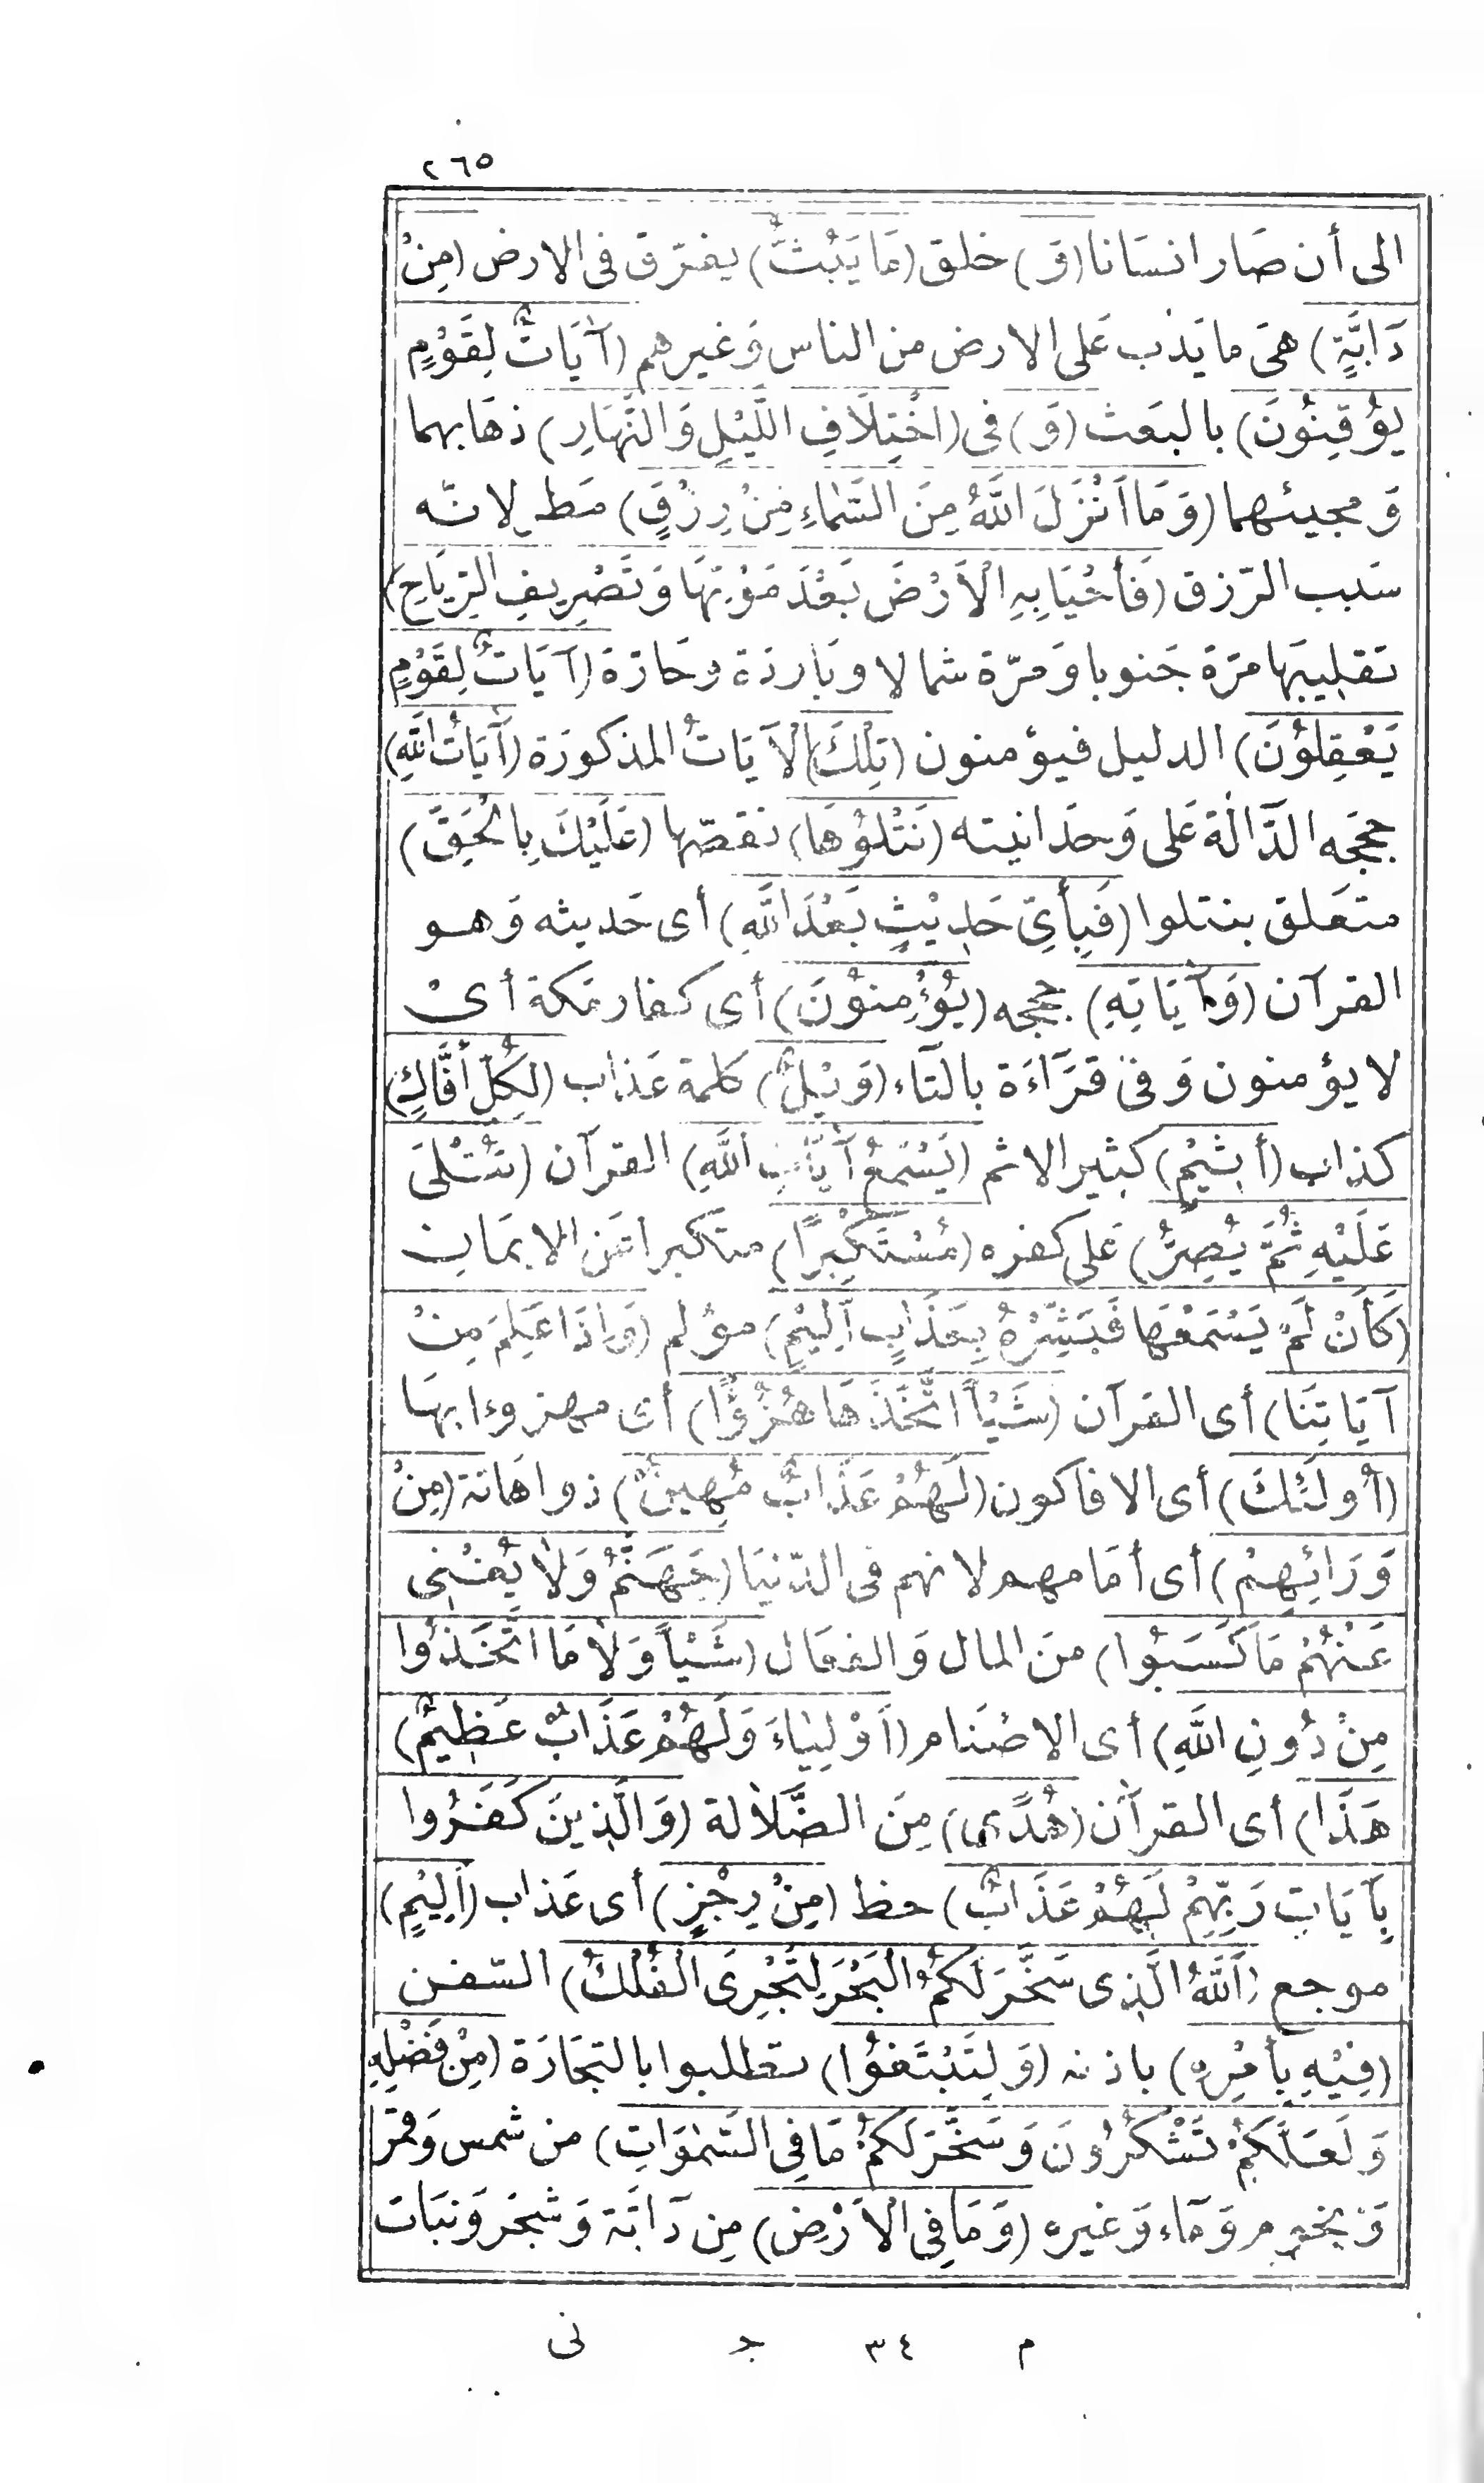 ٢٦٥
الى أن صَار انسَانا (وَ) خلق (مَا يَبُثُّ) يفرّق فى الارض (مِنْ
دَابَّةٍ) هىَ ما يَدب عَلى الارض من الناس وَغيرهم (آيَاتٌ لِقَوْمٍ
يُؤقِنُونَ) بالبعَث (وَ) فى (اخْتِلَافِ اللَّيْلِ وَالنَّهَارِ) ذهَابهما
وَمجيئهما (وَمَا اَنْزَلَ اللَّهُ مِنَ السَّمَاءِ مِنْ رِزْقٍ) مَطر لانّه
سَبب الرّزق (فَأَحْيَا بِهِ الْاَرْضَ بَعْدَ مَوْتِهَا وَتَصْرِيفِ الرِّيَاحِ)
تقليبَها مرّة جَنوبا وَمرّة شمالا وبَاردَة وحَارّة (آيَاتٌ لِقَوْمٍ
يَعْقِلُوْنَ) الدليل فيؤمنون (تِلْكَ) الْآيَاتُ المذكورَة (آيَاتُ اللَّهِ)
حججَه الدّالّة عَلى وَحدَانيته (نَتْلُوْهَا) نقصّها (عَلَيْكَ بِالْحَقِّ)
متعَلق بنتلوا (فَبِأَىِّ حَدِيْثٍ بَعْدَ اللَّهِ) أى حَديثه وَهو
القرآن (وَآيَاتِهِ) حججه (يُؤْمِنُوْنَ) أى كفار مَكة أىْ
لا يؤمنون وَفى قرَآءَة بالتآء (وَيْلٌ) كلمة عَذاب (لِكُلِّ أَفَّاكٍ)
كذاب (أَثِيْمٍ) كثير الاثم (يَسْمَعُ آيَاتِ اللَّهِ) القرآن (تُتْلَىَ
عَلَيْهِ ثُمَّ يُصِرُّ) عَلى كفره (مُسْتَكْبِرًا) متَكبرا عَن الايمَان
(كَأَنْ لَمْ يَسْمَعْهَا فَبَشِّرْهُ بِعَذَابٍ اَلِيْمٍ) مؤلم (وَاِذَا عَلِمَ مِنْ
آيَاتِنَا) أى القرآن (شَيْأً اتَّخَذَهَا هُزُؤًا) أى مهزوءا بهَا
(أُولَئِكَ) أى الافاكون (لَهُمْ عَذَابٌ مُهِينٌ) ذو اهَانة (مِنْ
وَرَائِهِمْ) أى أمَامهم لانهم فى الدّنيَا (جَهَنَّمُ وَلَا يُغْنِى
عَنْهُمْ مَا كَسَبُوا) منَ المال وَالفعَال (شَيْأً وَلَا مَا اتَّخَذُوا
مِنْ دُونِ اللَّهِ) أى الاصْنَام (اَوْلِيَاءَ وَلَهُمْ عَذَابٌ عَظِيمٌ)
هَذَا) أى القرآن (هُدًى) مِنَ الضَّلَالة (وَالَّذِينَ كَفَرُوا
بِآيَاتِ رَبِّهِمْ لَهُمْ عَذَابٌ) حظ (مِنْ رِجْزٍ) أى عَذاب (اَلِيْمٍ)
موجع (اَللَّهُ الَّذِى سَخَّرَ لَكُمُ الْبَحْرَ لِتَجْرِىَ الْفُلْكُ) السّفن
(فِيْهِ بِأَمْرِهِ) باذنه (وَلِتَبْتَغُوْا) تطلبوا بالتجَارَة (مِنْ فَضْلِهِ
وَلَعَلَّكُمْ تَشْكُرُوْنَ وَسَخَّرَ لَكُمْ مَا فِى السَّمٰوَاتِ) من شمس وَقمَر
وَنجوم وَمآء وَغيره (وَمَا فِى الْاَرْضِ) مِن دَآبّة وَشجَر وَنبَات
م ٣٤ ج نى